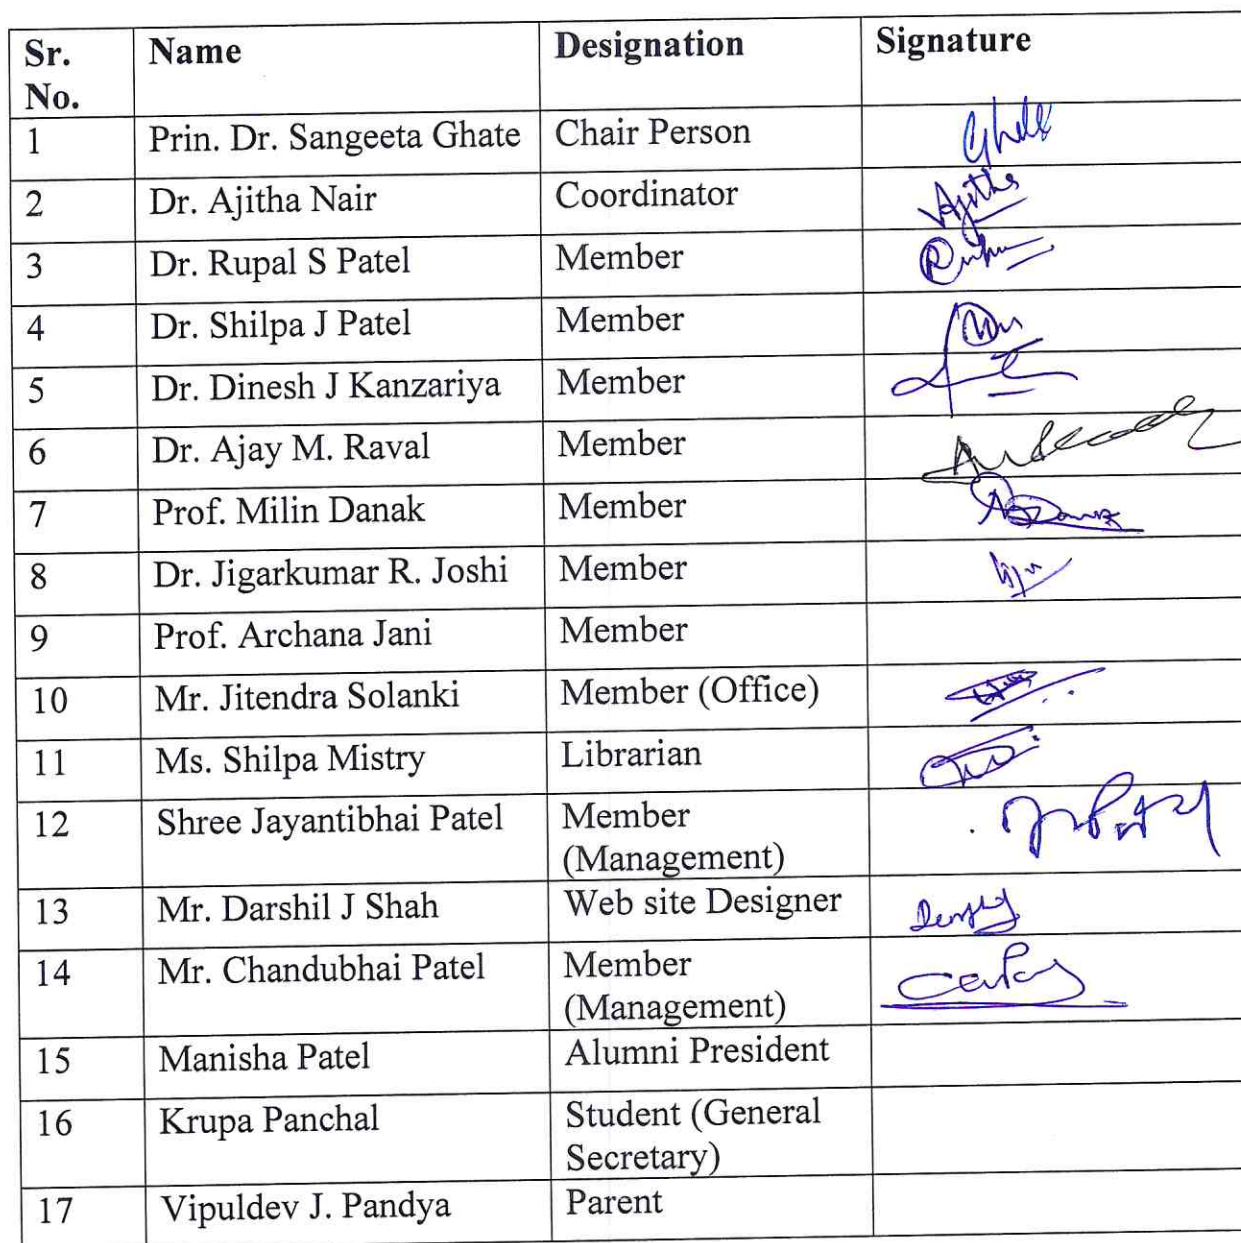 Sr. No. Name Designation Signature
1 Prin. Dr. Sangeeta Ghate Chair Person
2 Dr. Ajitha Nair Coordinator Ajitha
3 Dr. Rupal S Patel Member
4 Dr. Shilpa J Patel Member
5 Dr. Dinesh J Kanzariya Member
6 Dr. Ajay M. Raval Member
7 Prof. Milin Danak Member
8 Dr. Jigarkumar R. Joshi Member
9 Prof. Archana Jani Member
10 Mr. Jitendra Solanki Member (Office)
11 Ms. Shilpa Mistry Librarian
12 Shree Jayantibhai Patel Member
(Management)
13 Mr. Darshil J Shah Web site Designer
14 Mr. Chandubhai Patel Member
(Management)
15 Manisha Patel Alumni President
16 Krupa Panchal Student (General
Secretary)
17 Vipuldev J. Pandya Parent